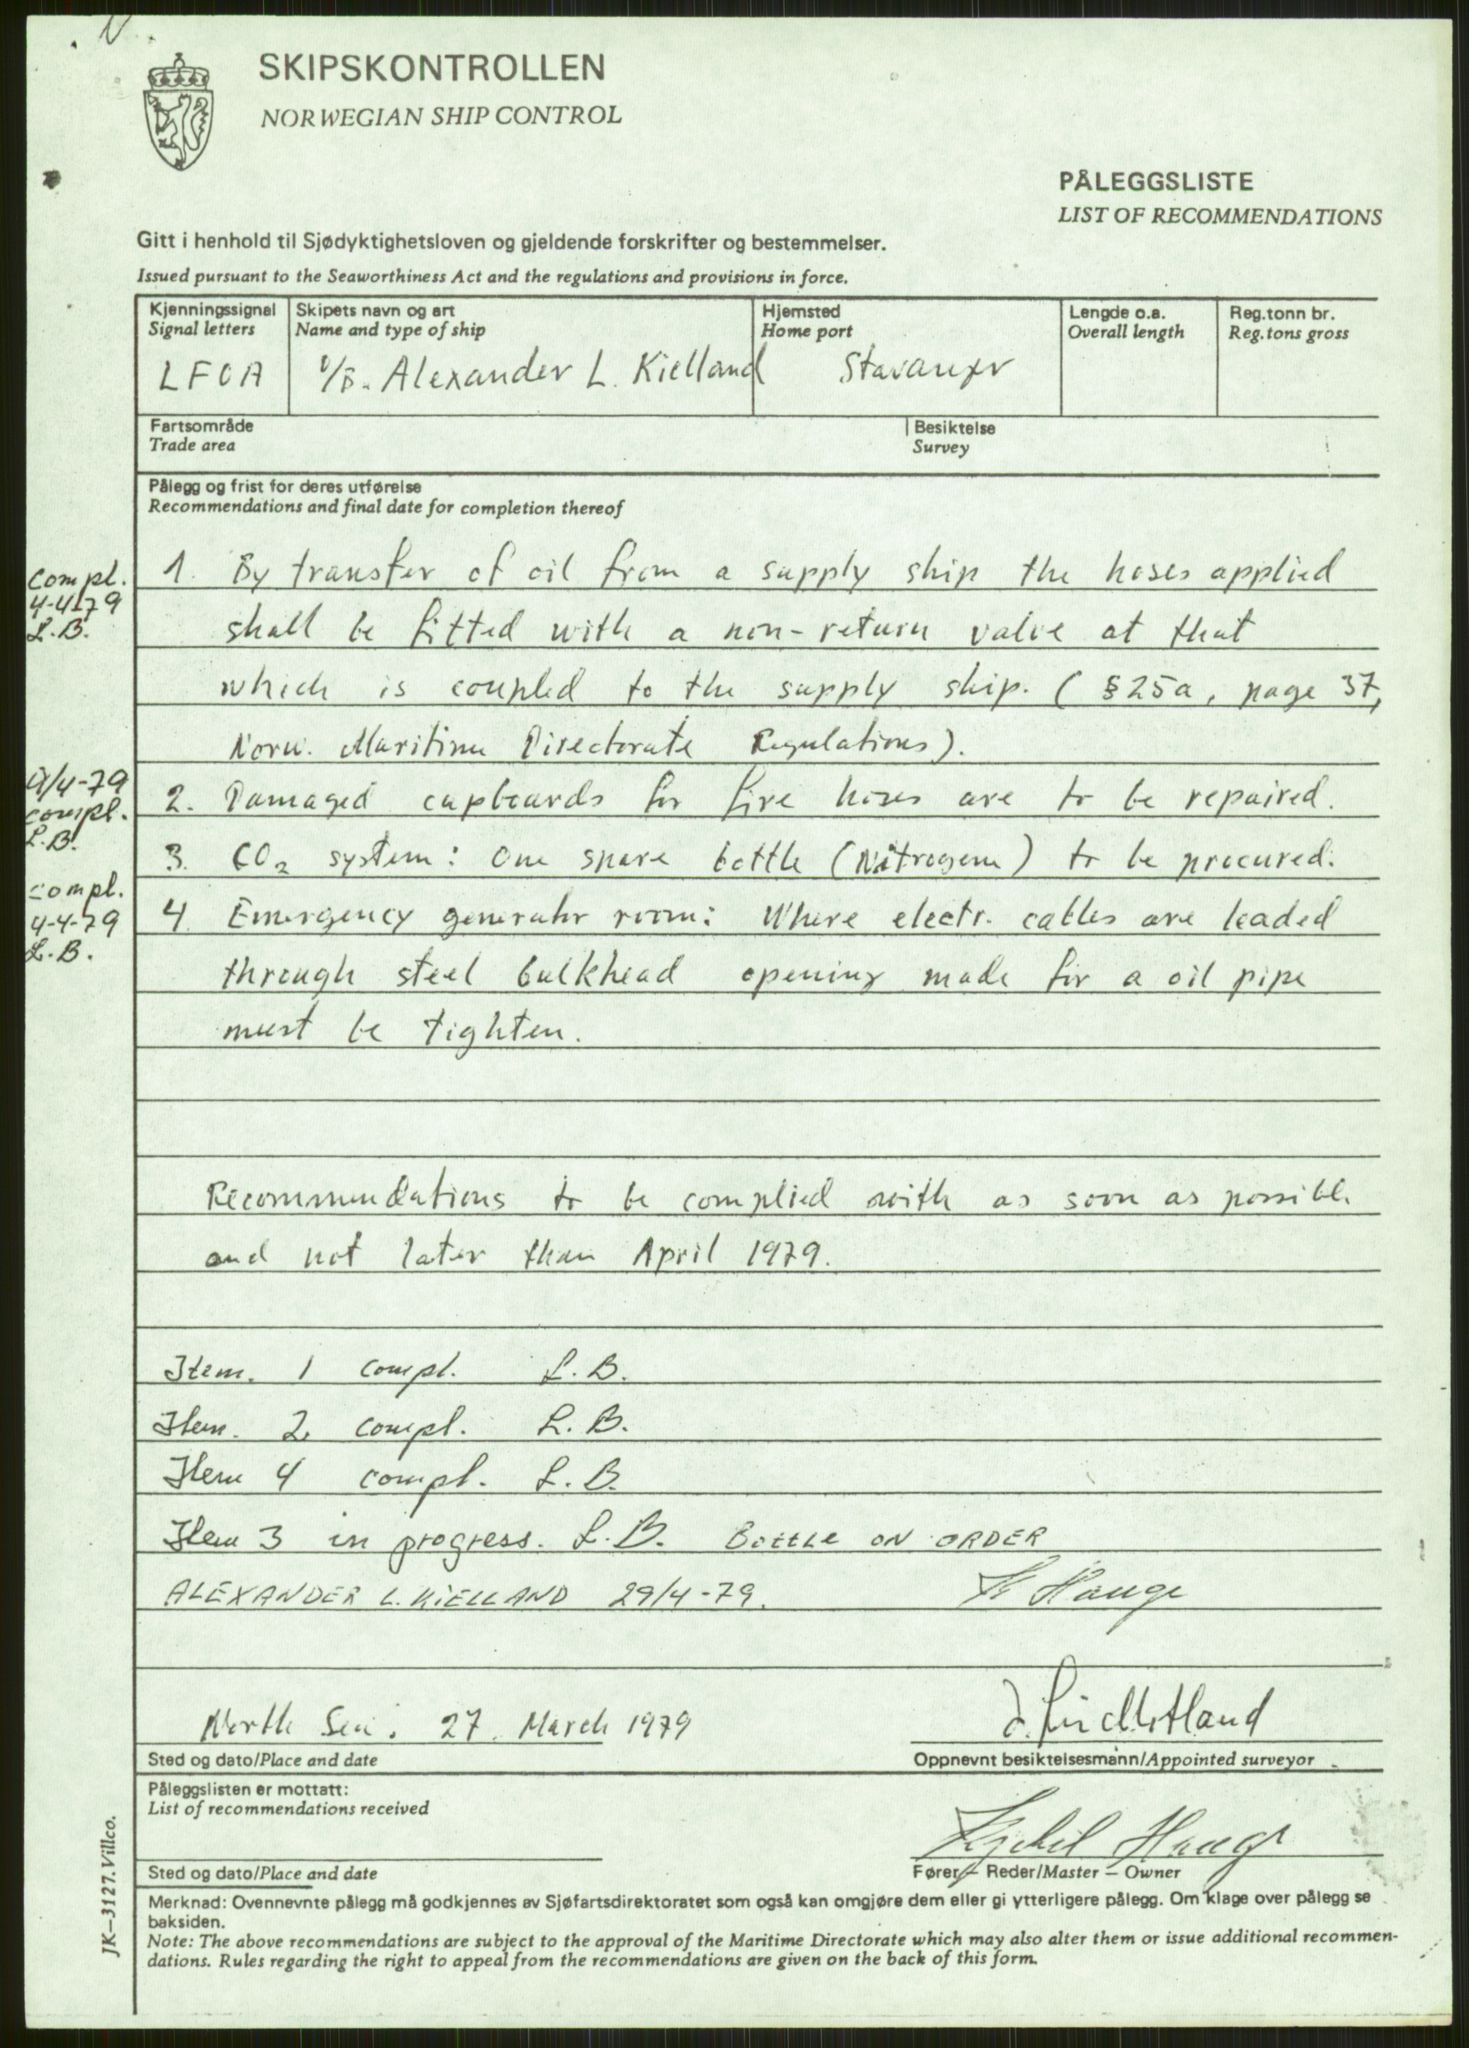 SKIPSKONTROLLEN
NORWEGIAN SHIP CONTROL
PÅLEGGSLISTE
LIST OF RECOMMENDATIONS
Gitt i henhold til Sjødyktighetsloven og gjeldende forskrifter og bestemmelser.
Issued pursuant to the Seaworthiness Act and the regulations and provisions in force.
Kjenningssignal
Signal letters
LFOA
Skipets navn og art
Name and type of ship
Alexander L. Kielland
Hjemsted
Home port
Stavanger
Lengde o.a.
Overall length
Reg.tonn br.
Reg. tons gross
Fartsområde
Trade area
Besiktelse
Survey
Pålegg og frist for deres utførelse
Recommendations and final date for completion thereof
compl.
4-4-79
L.B.
1. By transfer of oil from a supply ship the hoses applied
shall be fitted with a non-return valve at that
which is coupled to the supply ship. ( §25a, page 37,
Norw. Maritime Directorate Regulations).
4/4-79
compl.
L.B.
2. Damaged cupboards for fire hoses are to be repaired.
3. CO2 system: One spare bottle (Nitrogene) to be procured.
compl.
4-4-79
L.B.
4. Emergency generator room: Where electr. cables are leaded
through steel bulkhead opening made for a oil pipe
must be tighten.
Recommendations to be complied with as soon as possible
and not later than April 1979.
Item. 1 compl. L.B.
Item. 2. compl. L.B.
Item 4 compl. L.B.
Item 3 in progress. L.B. BOTTLE ON ORDER
ALEXANDER L. KIELLAND 29/4-79. Hauge
North Sea. 27. March 1979
Sted og dato/Place and date
Oppnevnt besiktelsesmann/Appointed surveyor
Påleggslisten er mottatt:
List of recommendations received
Hauge
Sted og dato/Place and date
Fører – Reder/Master – Owner
Merknad: Ovennevnte pålegg må godkjennes av Sjøfartsdirektoratet som også kan omgjøre dem eller gi ytterligere pålegg. Om klage over pålegg se
baksiden.
Note: The above recommendations are subject to the approval of the Maritime Directorate which may also alter them or issue additional recommen-
dations. Rules regarding the right to appeal from the recommendations are given on the back of this form.
JK–3127. Villco.